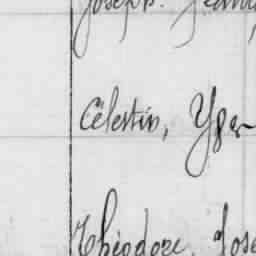 Joseph. Jean
Célestin, Yger
Théodore, Jose